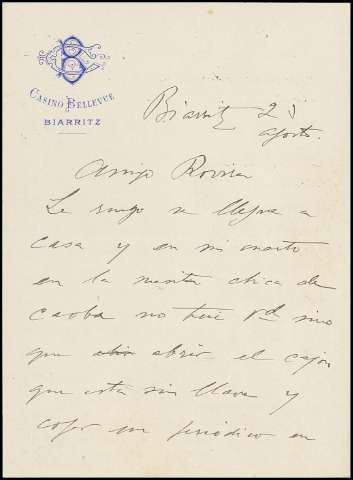 CB
CASINO BELLEVUE
BIARRITZ
Biarritz 23
agosto.
Amigo Rovira
Le ruego se llegue a
casa y en mi cuarto
en la mesita chica de
caoba no tiene Vd sino
que abrir el cajón
que esta sin llave y
cojer un periódico en